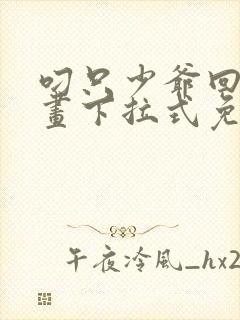 叼只少爷回
畫下拉式免
午夜冷風_hx2